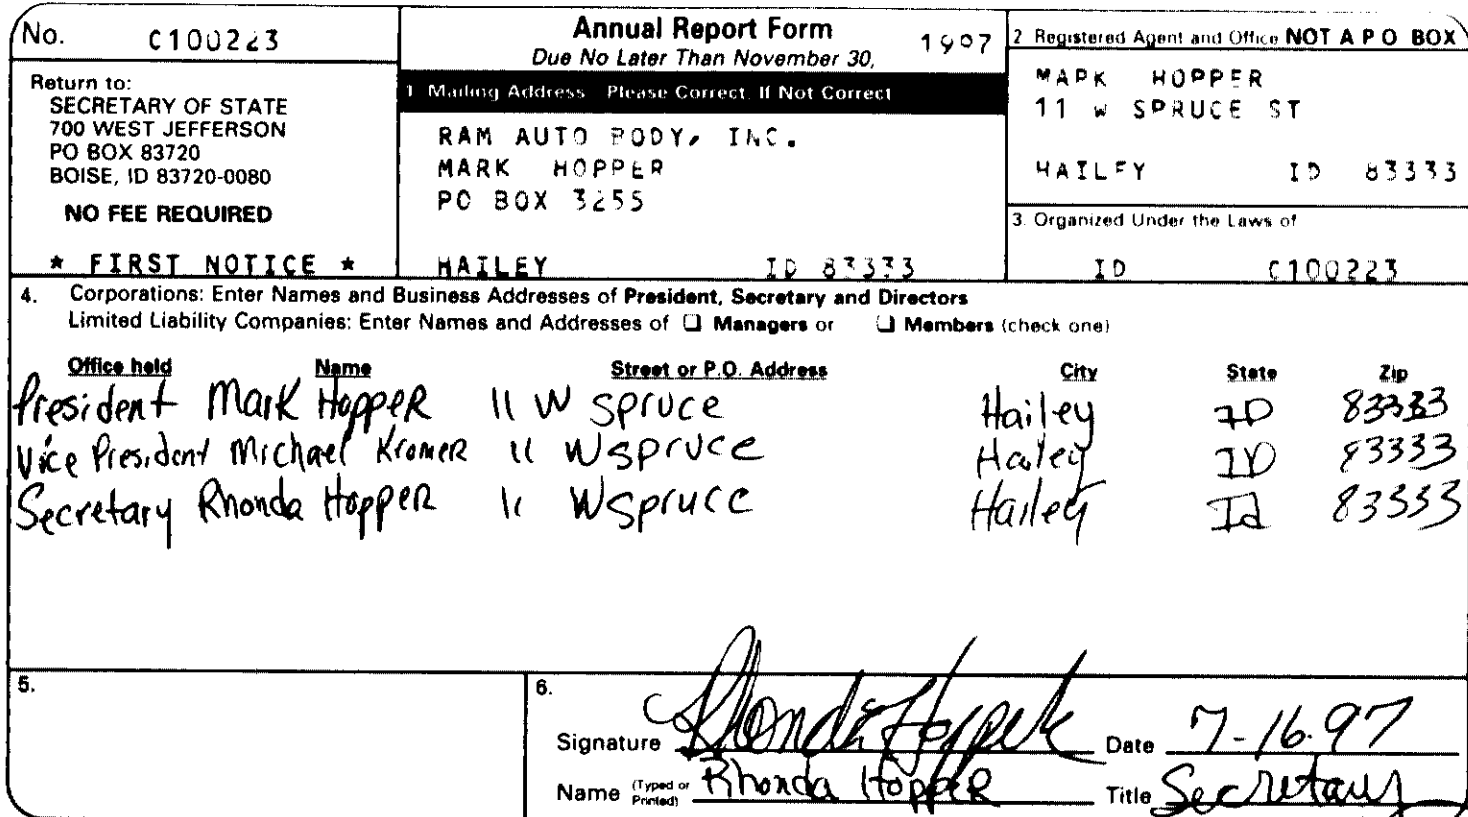 No. C100223
Annual Report Form 1997
Due No Later Than November 30,
Return to:
SECRETARY OF STATE
700 WEST JEFFERSON
PO BOX 83720
BOISE, ID 83720-0080
NO FEE REQUIRED
* FIRST NOTICE *
1 Mailing Address Please Correct, If Not Correct
RAM AUTO BODY, INC.
MARK HOPPER
PO BOX 3255
HAILEY ID 83333
2 Registered Agent and Office NOT A P O BOX
MARK HOPPER
11 W SPRUCE ST
HAILEY ID 83333
3. Organized Under the Laws of
ID C100223
4. Corporations: Enter Names and Business Addresses of President, Secretary and Directors
Limited Liability Companies: Enter Names and Addresses of ❑ Managers or ❑ Members (check one)
Office held Name Street or P.O. Address City State Zip
President Mark Hopper 11 W Spruce Hailey ID 83333
Vice President Michael Kromer 11 W Spruce Hailey ID 83333
Secretary Rhonda Hopper 11 W Spruce Hailey Id 83333
5.
6.
Signature Rhonda Hopper Date 7-16-97
Name (Typed or Printed) Rhonda Hopper Title Secretary